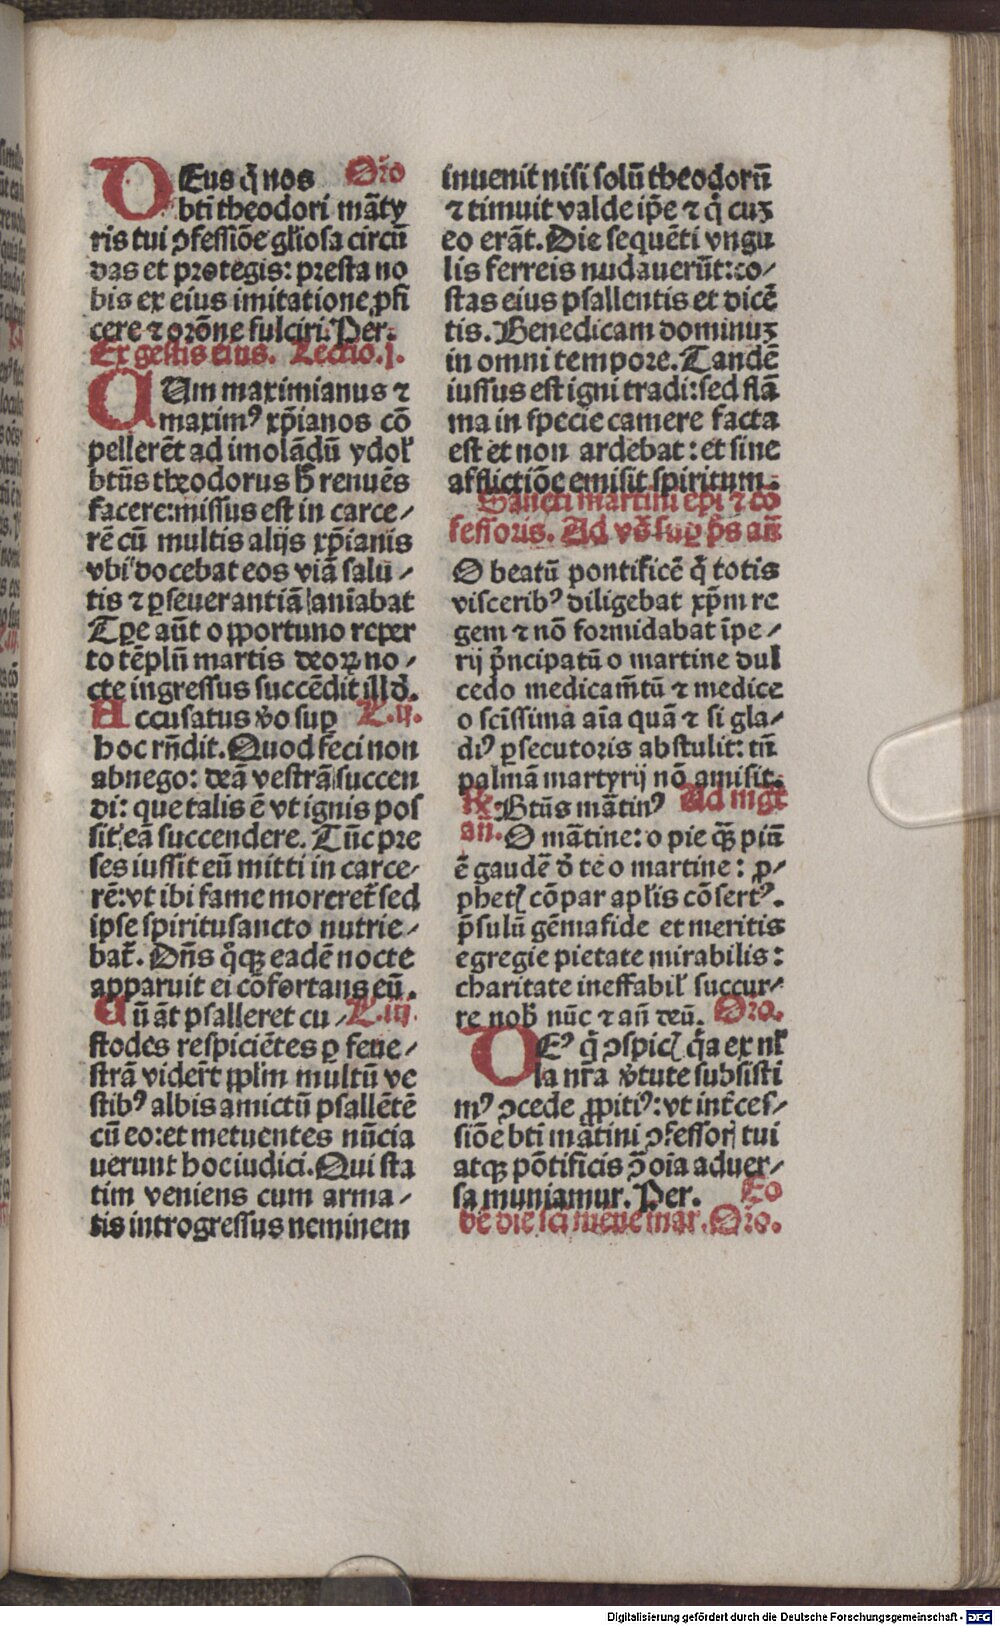 DEus q̄ nos Orō
bti̅ theodori ma̅ty
ris tui ɔfessiōe gl̓iosa circū
das et protegis: presta no
bis ex eius imitatione ꝓfi
cere ⁊ orōne fulciri. Per.
Ex gestis eius. Lectio.j.
CUm maximianus ⁊
maximꝰ xp̄ianos cō
pellerēt ad imolādū ydol̓
btūs theodorus h̄ renuēs
facere: missus est in carce⸗
rē cū multis alijs xp̄ianis
vbi docebat eos viā salu⸗
tis ⁊ ꝑseuerantiā aniābat
Tꝑe aūt opportuno reper
to tēplū martis deoꝝ no⸗
cte ingressus succēdit illd̓.
Accusatus v̓o suꝑ L.ij.
hoc rn̄dit. Quod feci non
abnego: deā vestrā succen
di: que talis ē vt ignis pos
sit eā succendere. Tūc pre
ses iussit eū mitti in carce⸗
rē: vt ibi fame moreret̓ sed
ipse spiritusancto nutrie⸗
bat̓. Dn̄s q̊qꝫ eadē nocte
apparuit ei cōfortans eū.
Cū āt psalleret cu⸗ L.iij.
stodes respiciētes ꝑ fene⸗
strā viderūt pp̄l̓m multū ve
stibꝰ albis amictū psallētē
cū eo: et metuentes nūcia
uerunt hoc iudici. Qui sta
tim veniens cum arma⸗
tis introgressus neminem
inuenit nisi solū theodorū
⁊ timuit valde ip̄e ⁊ q̄ cuꝫ
eo erāt. Die sequēti vngu
lis ferreis nudauerūt: co⸗
stas eius psallentis et dicē
tis. Benedicam dominuꝫ
in omni tempore. Tandē
iussus est igni tradi: sed flā
ma in specie camere facta
est et non ardebat: et sine
afflictiōe emisit spiritum.
Sancti martini epi̅ ⁊ cō
fessoris. Ad vs̄ suꝑ p̄s an̄
O beatū pontificē q̄ totis
visceribꝰ diligebat xp̄m re
gem ⁊ nō formidabat īpe⸗
rij p̄ncipatū o martine dul
cedo medicam̄tū ⁊ medice
o sc̄issima aīa quā ⁊ si gla⸗
diꝰ ꝑsecutoris abstulit: tn̄
palmā martyrij nō amisit.
℟. Btūs mātinꝰ Ad mg̅t
an̄. O mātine: o pie q̄ꝫ piū
ē gaudē d̓ te o martine: ꝓ⸗
phetꝭ cōpar apl̓is cōsertꝰ.
p̄sulū gēma fide et meritis
egregie pietate mirabilis:
charitate ineffabil̓ succur⸗
re nob̓ nūc ⁊ an̄ deū. Oro.
DEꝰ q̄ ɔspicꝭ q̄a ex nl̓
la nr̄a v̓tute subsisti
mꝰ ɔcede ꝓpitiꝰ: vt int̓ces⸗
siōe bti̅ mātini ɔfessorꝭ tui
atqꝫ pōtificis ɔ̄ oīa aduer⸗
sa muniamur. Per. Eo
dē die sci̅ mene mar. Oro.
Digitalisierung gefördert durch die Deutsche Forschungsgemeinschaft - DFG